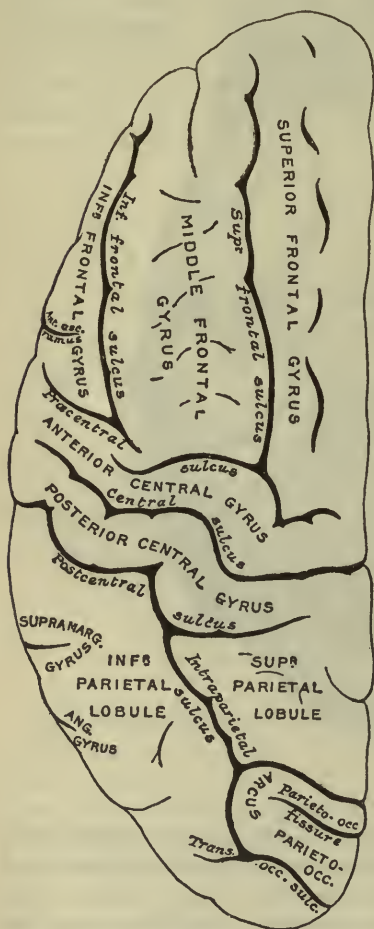 SUPERIOR FRONTAL GYRUS
Supr frontal sulcus
MIDDLE FRONTAL
GYRUS
Inf. frontal sulcus
INFR FRONTAL
GYRUS
Ant. asc.
ramus
Præcentral sulcus
ANTERIOR CENTRAL GYRUS
Central sulcus
POSTERIOR CENTRAL GYRUS
Postcentral sulcus
SUPRAMARG.
GYRUS
INFR
PARIETAL
LOBULE
Intraparietal sulcus
SUPR
PARIETAL
LOBULE
ANG.
GYRUS
ARCUS
PARIETO-
OCC.
Parieto-occ
fissure
Trans. occ. sulc.